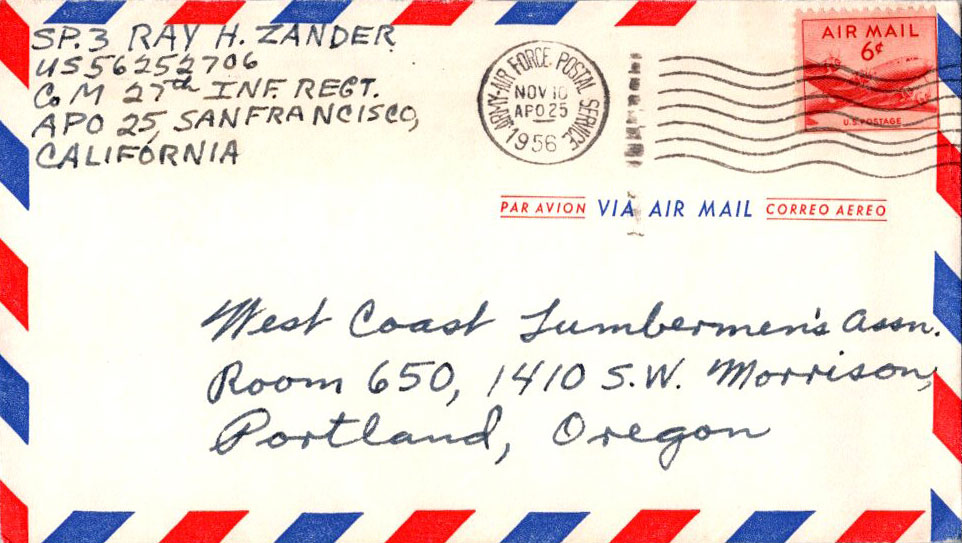 SP.3 RAY H. ZANDER
US56252706
Co M 27th INF. REGT.
APO 25, SAN FRANCISCO,
CALIFORNIA
ARMY-AIR FORCE POSTAL SERVICE
NOV 10
APO 25
1956
AIR MAIL
6¢
U.S. POSTAGE
PAR AVION VIA AIR MAIL CORREO AEREO
West Coast Lumbermen's Assn.
Room 650, 1410 S.W. Morrison,
Portland, Oregon